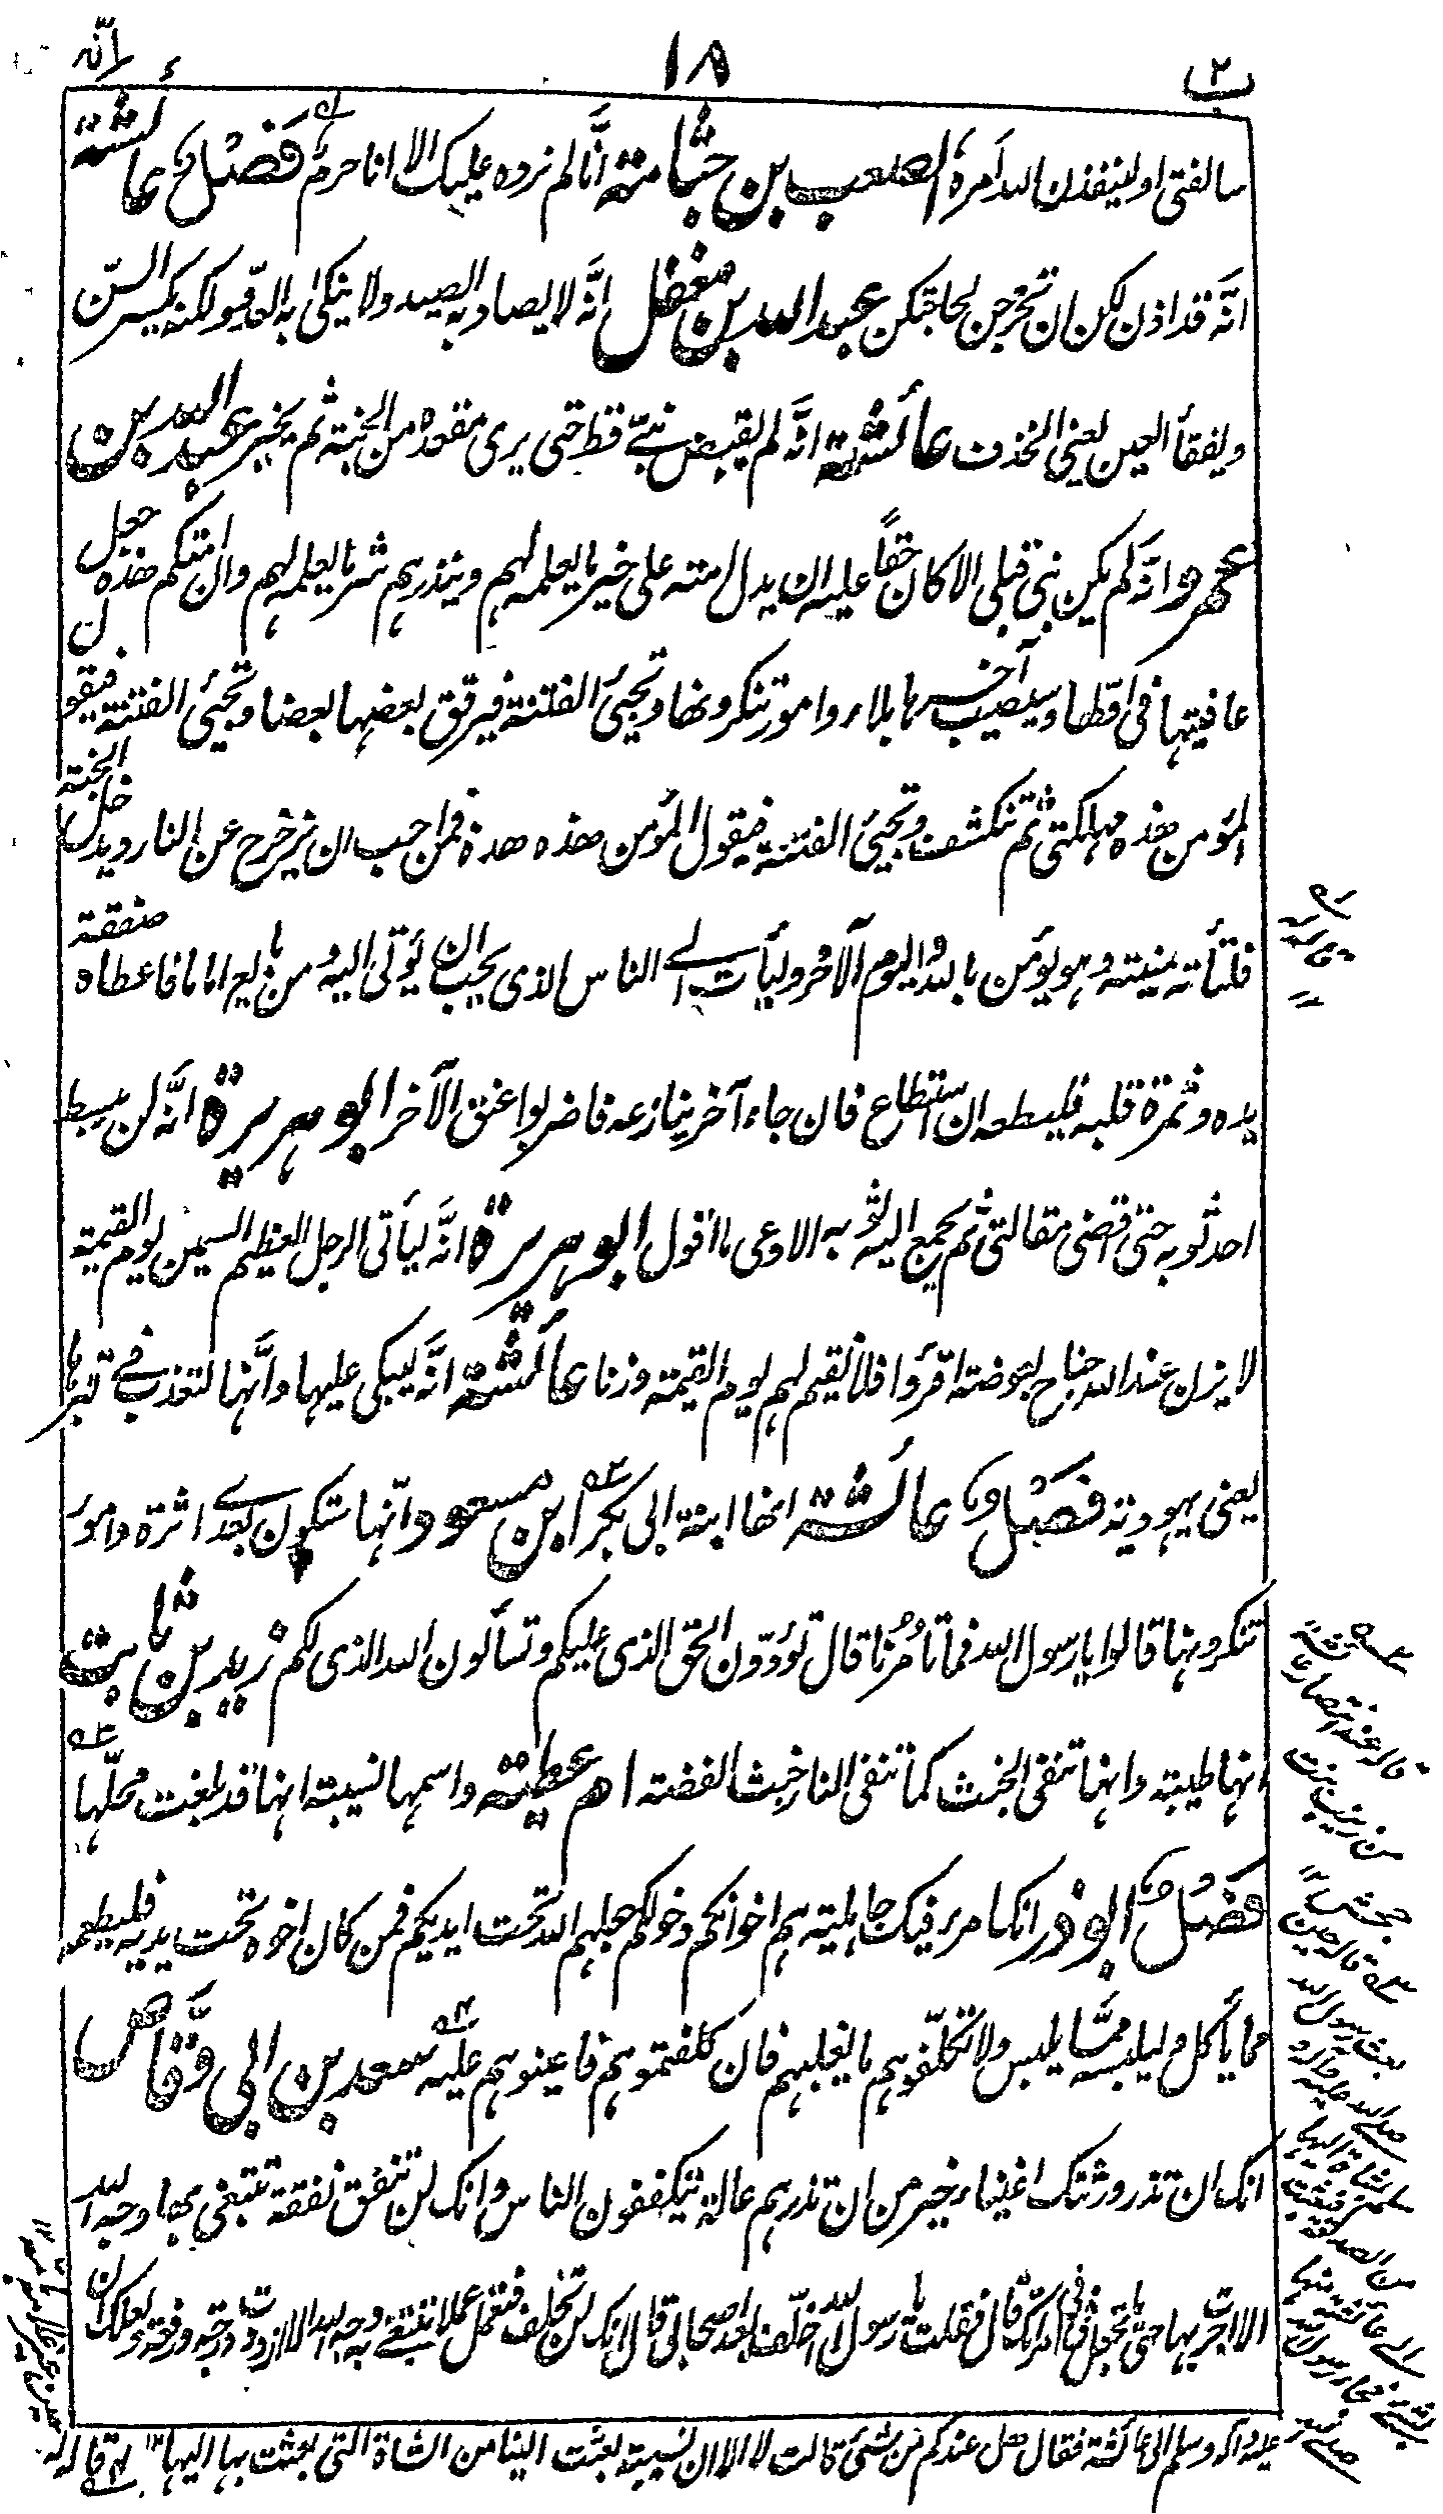 ٢ ب
١٨
سالفتى او لينفذن الله أمره الصعب بن جثامة أنَّا لم نرده عليك الا انا حرم فصل عائشة انّه
انَّه قد اذن لكن ان تخرجن لحاجتكن عبد الله بن مغفل انَّه لا يصاد به الصيد ولا ينكى به العدو ولكنه يكسر السنّ
ويفقأ العين يعني الخذف عائشة انَّه لم يقبض نبيّ قط حتى يرى مقعده من الجنة ثم يخير عبد الله بن
عمرو انَّه لم يكن نبى قبلى الا كان حقاً عليه ان يدل امته على خير ما يعلمه لهم وينذرهم شر ما يعلمه لهم وان امتكم هذه جعل
عافيتها فى اولها وسيصيب آخرها بلاء وامور تنكرونها وتجئ الفتنة فيرقق بعضها بعضا وتجئ الفتنة فيقول
المؤمن هذه مهلكتى ثم تنكشف وتجئ الفتنة فيقول المؤمن هذه هذه فمن احب ان يزحزح عن النار ويدخل الجنة
فلتأته منيته وهو يؤمن بالله واليوم الآخر وليأت الى الناس الذى يحب ان يؤتى اليه ومن بايع اماما فاعطاه صفقة
يده وثمرة قلبه فليطعه ان استطاع فان جاء آخر ينازعه فاضربوا عنق الآخر ابو هريرة انَّه لن يبسط
احد ثوبه حتى اقضى مقالتى ثم يجمع اليه ثوبه الا وعى ما اقول ابو هريرة انَّه ليأتى الرجل العظيم السمين يوم القيمة
لا يزن عند الله جناح بعوضة اقرؤا فلا نقيم لهم يوم القيمة وزنا عائشة انَّه ليبكى عليها وانَّها لتعذب فى قبرها
يعنى يهودية فصل عائشة انها ابنة ابى بكر ابن مسعود انّها ستكون بعدى اثرة وامور
تنكرونها قالوا يا رسول الله فما تأمُرُنا قال تؤدّون الحق الذى عليكم وتسألون الله الذى لكم زيد بن ثابت
انها طيبة وانها تنفى الخبث كما تنفى النار خبث الفضة ام عطية واسمها نسيبة انها قد بلغت محلّها
فصل ابو ذر انك امرء فيك جاهلية هم اخوانكم وخولكم جعلهم الله تحت ايديكم فمن كان اخوه تحت يديه فليطعمه
مما يأكل وليلبسه ممَّا يلبس ولا تكلّفوهم ما يغلبهم فان كلفتموهم فاعينوهم عليه سعد بن ابى وقَّاص
انك ان تذر ورثتك اغنياء خير من ان تذرهم عالة يتكففون الناس وانك لن تنفق نفقة تبتغى بها وجه الله
الا اجرت بها حتى ما تجعل فى فى امرأتك قال فقلت يا رسول الله اخلّف بعد اصحابى قال انك لن تخلف فتعمل عملا تبتغى به وجه الله الا ازددت به درجة ورفعة ولعلك ان
قاله عند انتصار عائشة
من زينب بنت
جحش ١٢
قاله حين
بعث رسول الله
صلى الله عليه وآله و
سلم شاة اليها
فبعثت
من الصدقة
الى عائشة منها
بشئ فجاء رسول الله
صلى الله
عليه وآله وسلم الى عائشة فقال هل عندكم من شئ قالت لا الا ان نسيبة بعثت الينا من الشاة التى بعثت بها اليها ١٢ قاله